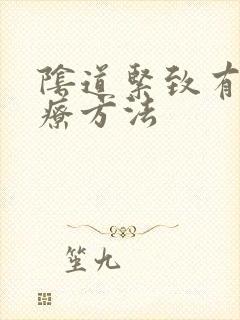 陰道緊致有
療方法
笙九